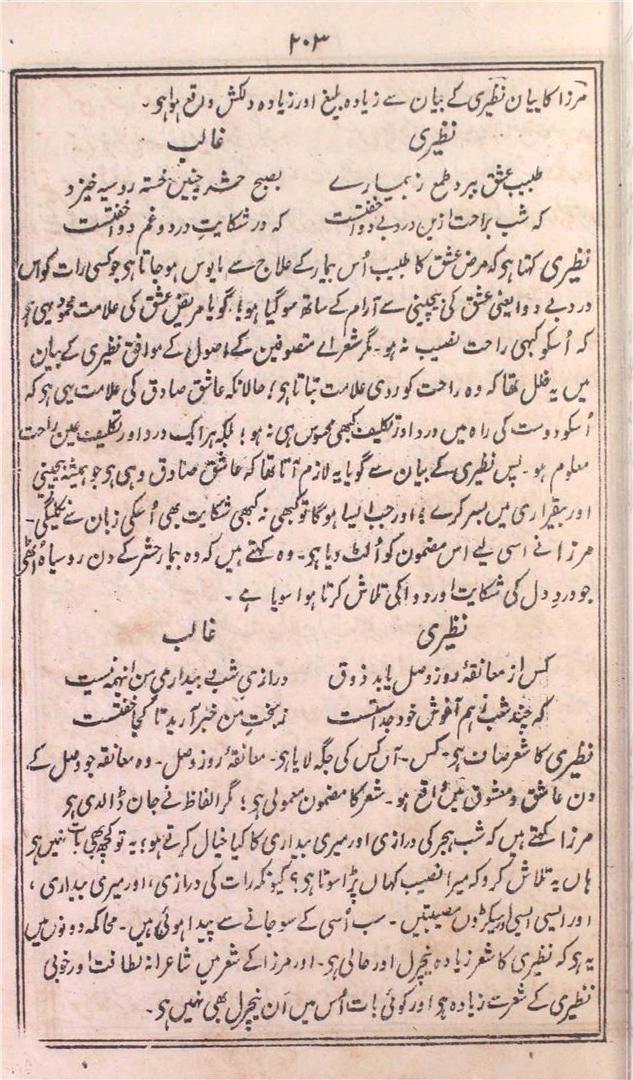 ۲۰۳
مرزا کا بیان نظیری کے بیان سے زیادہ بلیغ اور زیادہ دلکش واقع ہوا ہو۔
نظیری غالب
طبیب عشق برد طمع ز بیمارے بصبح حشر چنیں خستہ روسیہ خیزد
کہ شب براحت ازیں درد بے دوا خفتست کہ در شکایتِ درد و غم دوا خفتست
نظیری کہتا ہو کہ مرض عشق کا طبیب اُس بیمار کے علاج سے مایوس ہو جاتا ہو جو کسی رات کو اس
درد بے دوا یعنی عشق کی بیچینی سے آرام کے ساتھ سو گیا ہو؛ گویا مریضِ عشق کی علامت یہی ہو
کہ اُسکو کبھی راحت نصیب نہ ہو۔ مگر شعراے متصوفین کے اصول کے موافق نظیری کے بیان
میں یہ خلل تھا کہ وہ راحت کو ردی علامت بتاتا ہو؛ حالانکہ عاشق صادق کی علامت یہی ہو کہ
اُسکو دوست کی راہ میں درد اور تکلیف کبھی محسوس ہی نہ ہو؛ بلکہ ہر ایک درد اور تکلیف عین راحت
معلوم ہو۔ پس نظیری کے بیان سے گویا یہ لازم آتا تھا کہ عاشق صادق وہی ہو جو ہمیشہ بیچینی
اور بیقراری میں بسر کرے؛ اور جب ایسا ہوگا تو کبھی نہ کبھی شکایت بھی اُسکی زبان سے نکلیگی۔
مرزا نے اسی لیے اس مضمون کو اُلٹ دیا ہو۔ وہ کہتے ہیں کہ وہ بیمار حشر کے دن روسیاہ اُٹھے
جو درد دل کی شکایت اور دوا کی تلاش کرتا ہوا سویا ہے۔
نظیری غالب
کس از معانقۂ روز وصل یابد ذوق درازیِ شب و بیداریِ من اینہمہ نیست
کہ چند شب ز ہم آغوش خود جدا خفتست ز بختِ من خبر آرید تا کجا خفتست
نظیری کا شعر صاف ہو۔ کس۔ آں کس کی جگہ لایا ہو۔ معانقۂ روز وصل۔ وہ معانقہ جو وصل کے
دن عاشق و معشوق میں واقع ہو۔ شعر کا مضمون معمولی ہو؛ مگر الفاظ نے جان ڈالدی ہو
مرزا کہتے ہیں کہ شب ہجر کی درازی اور میری بیداری کا کیا خیال کرتے ہو؛ یہ تو کچھ بھی بات نہیں ہو
ہاں یہ تلاش کرو کہ میرا نصیب کہاں پڑا سوتا ہو؟ کیونکہ رات کی درازی، اور میری بیداری،
اور ایسی ایسی اور سیکڑوں مصیبتیں۔ سب اُسی کے سو جانے سے پیدا ہوئی ہیں۔ محاکمہ دونوں میں
یہ ہو کہ نظیری کا شعر زیادہ نیچرل اور حالی ہو۔ اور مرزا کے شعر میں شاعرانہ لطافت اور خوبی
نظیری کے شعر سے زیادہ ہو اور کوئی بات اُس میں اَن نیچرل بھی نہیں ہو۔